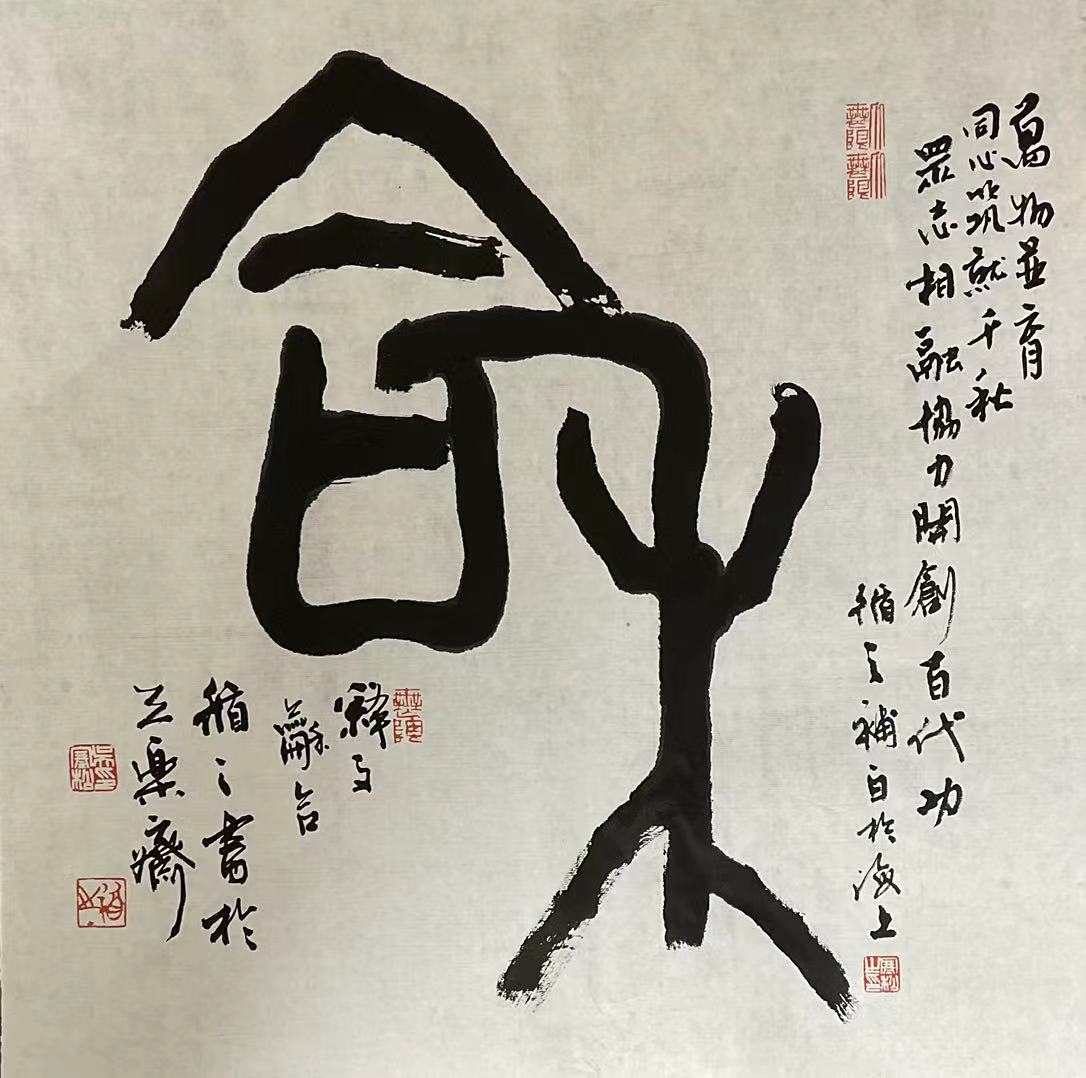 萬物並育
同心筑就千秋
眾志相融協力開創百代功
循之補白於海上
和合
釋文
龢合
循之書於
三樂齋